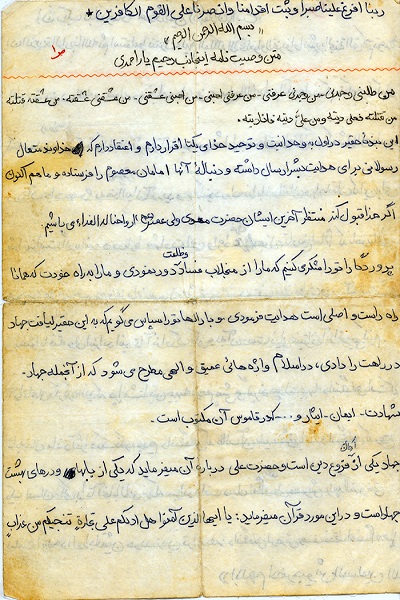 ربنا افرغ علینا صبرا و ثبت اقدامنا و انصرنا علی القوم الکافرین
بسم الله الرحمن الرحیم
متن وصیت نامه اینجانب رحیم یاراحمدی
من طلبنی وجدنی من وجدنی عرفنی - من عرفنی احبنی - من احبنی عشقنی - من عشقنی عشقته - من عشقته قتلته
من قتلته فعلی دیته و من علی دیته فانا دیته
این بنده حقیر در اول به وحدانیت و توحید خدای یکتا اقرار دارم و اعتقاد دارم که خداوند متعال
رسولانی برای هدایت بشر ارسال داشته و دنباله آنها امامان معصوم را فرستاده و ما هم اکنون
اگر خدا قبول کند منتظر آخرین ایشان حضرت مهدی ولی عصر عج ارواحنا له الفداء می باشیم
پروردگارا تو را شکر می کنیم که ما را از منجلاب فساد و ظلمت دور نمودی و ما را به راه خودت که همانا
راه راست و اصلی است هدایت فرمودی و بارالها تو را سپاس می گویم که به این حقیر لیاقت جهاد
در راهت را دادی، در اسلام واژه هائی عمیق و الهی مطرح می شود که از آنجمله جهاد -
شهادت - ایمان - ایثار و ... که در قاموس آن مکتوب است -
جهاد یکی از ارکان فروع دین است و حضرت علی درباره آن میفرماید که یکی از بابها و درهای بهشت
جهاد است و در این مورد قرآن میفرماید: یا ایها الذین آمنوا هل ادلکم علی تجارة تنجیکم من عذاب